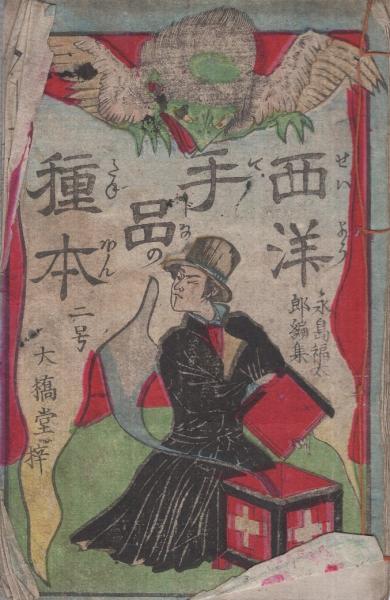 西洋
せいよう
手品の
てじなの
種本
たねほん
二号
永島福太
郎編集
大橋堂梓